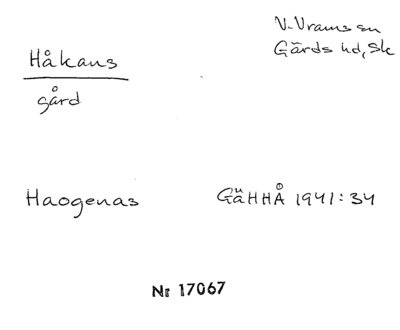 V. Vrams sn
Gärds hd, Sk
Håkans
gård
Haogenas
GäHHÅ 1941:34
Nr 17067